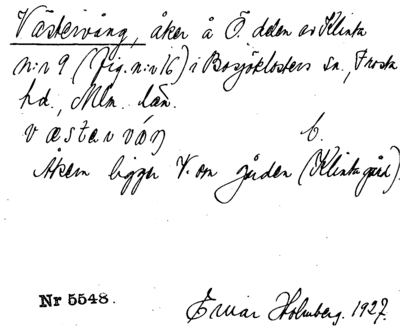 Västervång, åker å Ö. delen av Klinta
n:r 9 (fig. n:r 16) i Bosjöklosters sn., Frosta
hd., Mlm. län.
våstarváŋ b.
Åkern ligger V. om gården (Klinta gård).
Nr 5548.
Einar Holmberg. 1927.